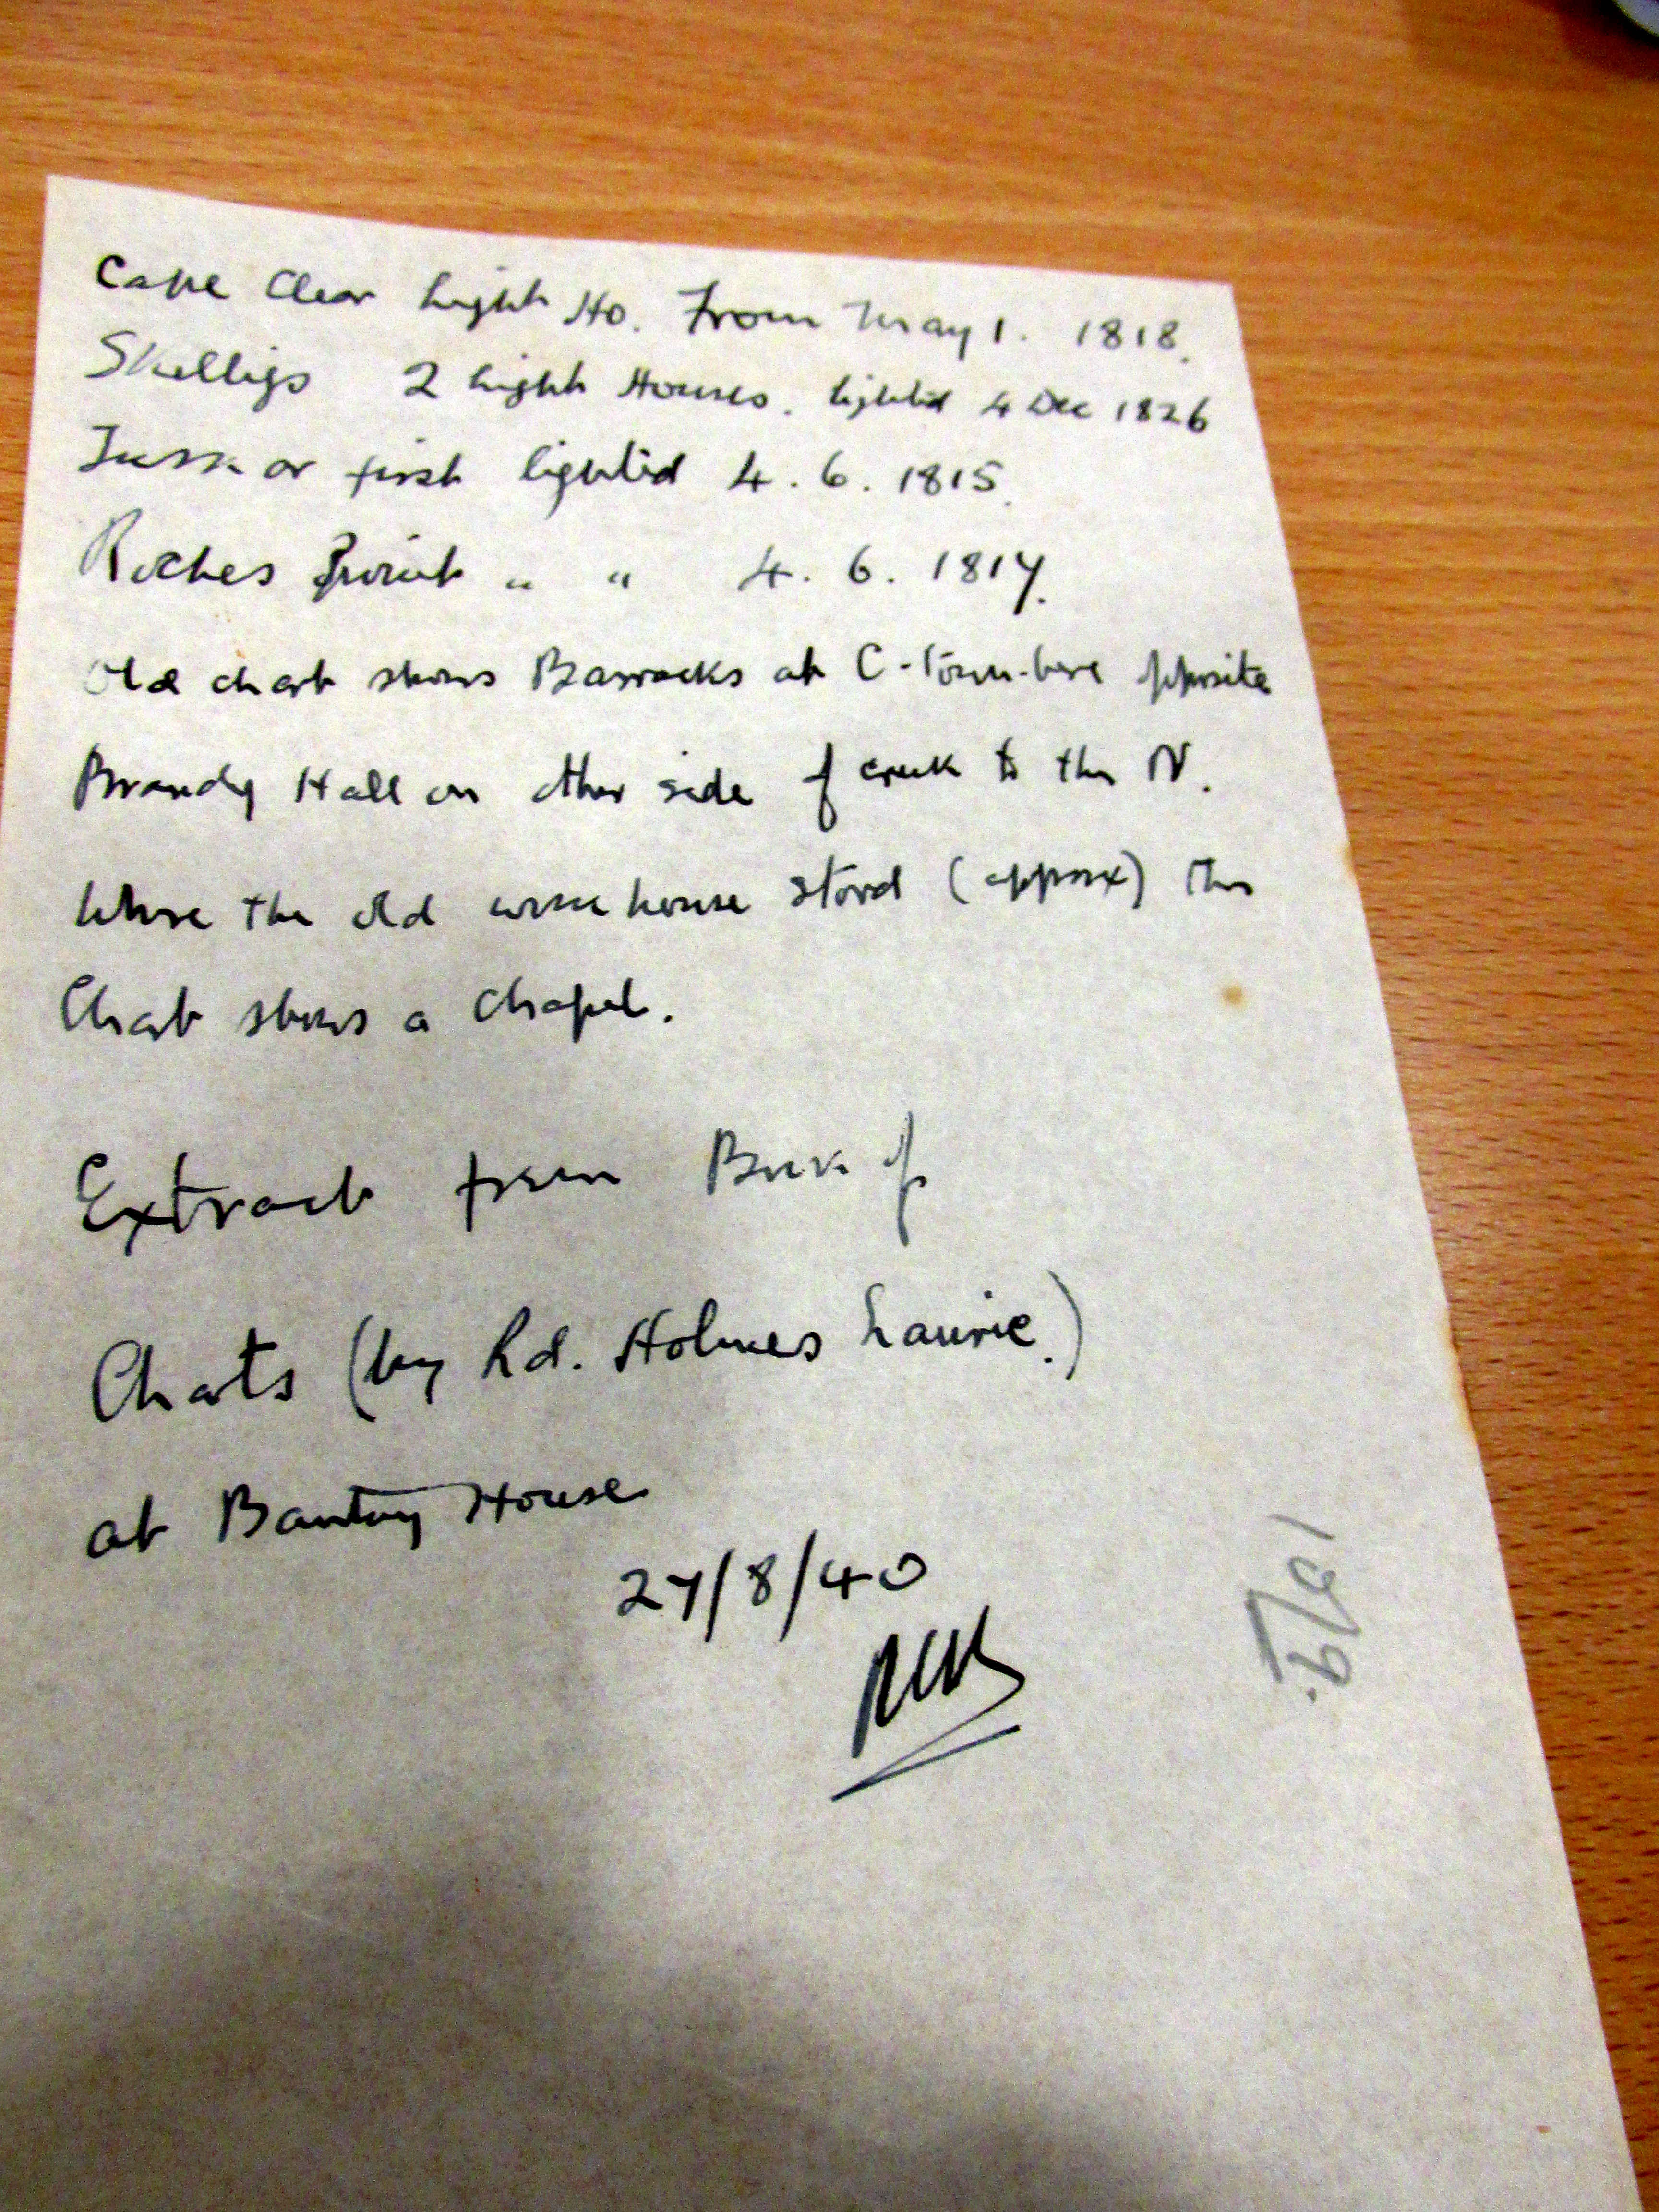 Cape Clear Light Ho. From May 1. 1818.
Skelligs 2 Light Houses. lighted 4 Dec 1826
Tuskar first lighted 4. 6. 1815.
Roches Point " " 4. 6. 1817.
Old chart shows Barracks at C-town-bere opposite
Brandy Hall on other side of creek to the N.
Where the old workhouse stood (approx) the
Chart shows a Chapel.
Extract from Book of
Charts (by Rd. Holmes Laurie.)
at Bantry House
27/8/40